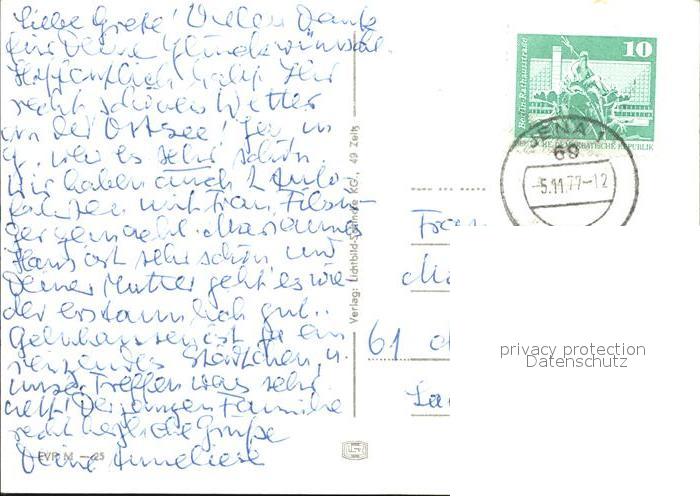 Liebe Grete! Vielen Dank
für Deine Glückwünsche.
Hoffentlich habt Ihr
recht schönes Wetter
an der Ostsee! Hier in
G. war es sehr schön.
Wir haben auch 2 Auto-
fahrten mit Frau
gemacht. Mariannes
Haus ist sehr schön und
Deiner Mutter geht es wie-
der erstaunlich gut.
Gelnhausen ist ja ein
reizendes Städtchen, u.
unser Treffen war sehr
nett! Der ganzen Familie
recht herzliche Grüße
Deine Anneliese
EVP M —,25
Verlag: Lichtbild KG., 49 Zeitz
10
Berlin-Rathausstraße
DEUTSCHE DEMOKRATISCHE REPUBLIK
JENA 1
69
-5.11.77-12
Frau
61
privacy protection
Datenschutz